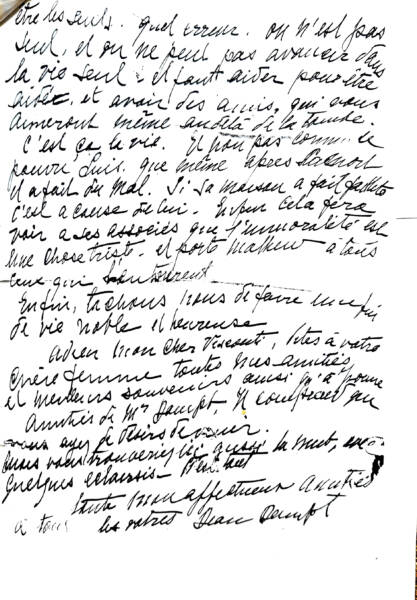 être les seuls. quel erreur. on n'est pas
seul, et on ne peut pas avancer dans
la vie seul. il faut aider pour être
aidé, et avoir des amis, qui vous
aimeront même au delà de la tombe.
C'est ça la vie. Et non pas comme le
pauvre Luis, que même après sa mort
il a fait du mal. Si sa maison a fait faillite
c'est a cause de lui. Enfin cela fera
voir a ses associés que l'immoralité est
une chose triste. et porte malheur à tous
ceux qui l'entourent
Enfin, tachons nous de faire une fin
de vie noble et heureuse
Adieu mon cher Visconti, dites à votre
chère femme toutes nos amitiés
et meilleurs souvenirs ainsi qu'à
Amitiés de Mr Dampt, Il
vous avez de désirs de
vous trouverez ici aussi la nuit, avec
quelques eclaircis. tout
mon affectueux amitiés
à tous les votres Jean Dampt